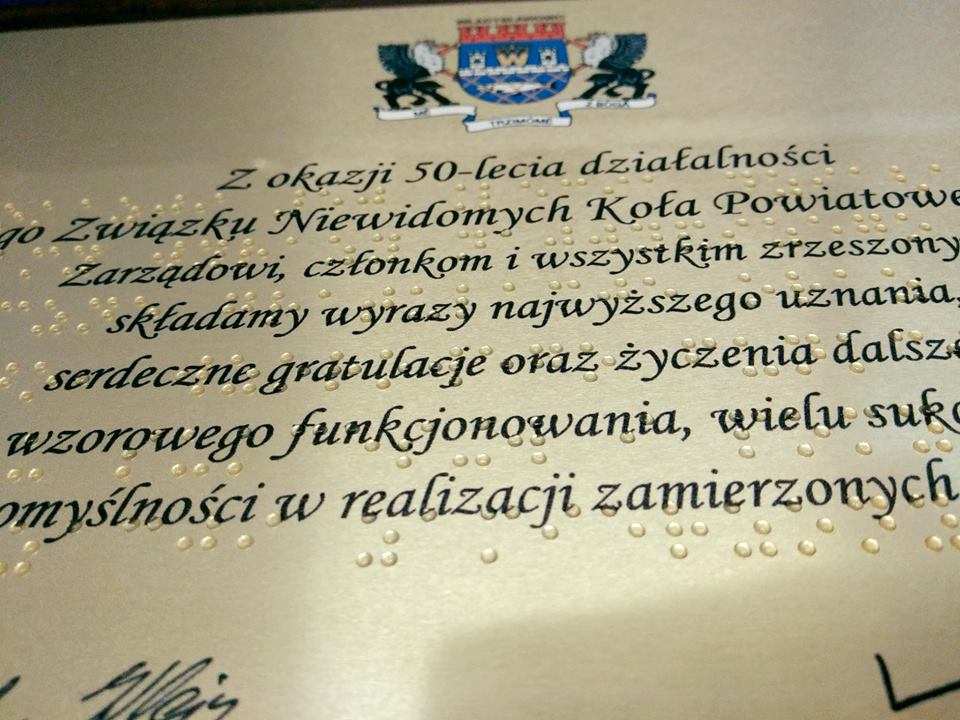 WŁADYSŁAWOWO
W
MË TRZIMÓMË Z BÒGA
Z okazji 50-lecia działalności
go Związku Niewidomych Koła Powiatowe
Zarządowi, członkom i wszystkim zrzeszony
składamy wyrazy najwyższego uznania,
serdeczne gratulacje oraz życzenia dalsze
wzorowego funkcjonowania, wielu suk
omyślności w realizacji zamierzonych